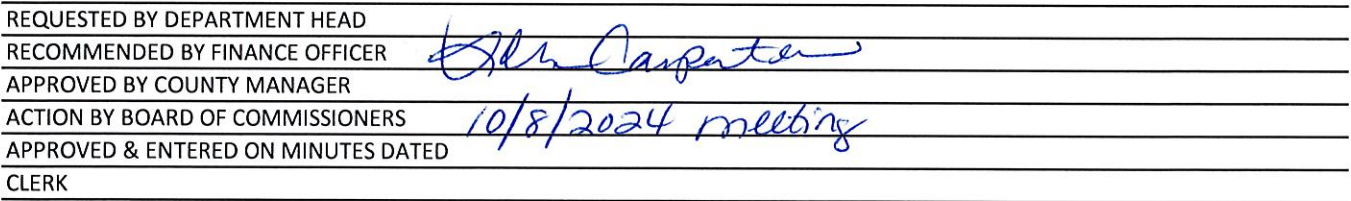 REQUESTED BY DEPARTMENT HEAD
RECOMMENDED BY FINANCE OFFICER Carpenter
APPROVED BY COUNTY MANAGER
ACTION BY BOARD OF COMMISSIONERS 10/8/2024 meeting
APPROVED & ENTERED ON MINUTES DATED
CLERK